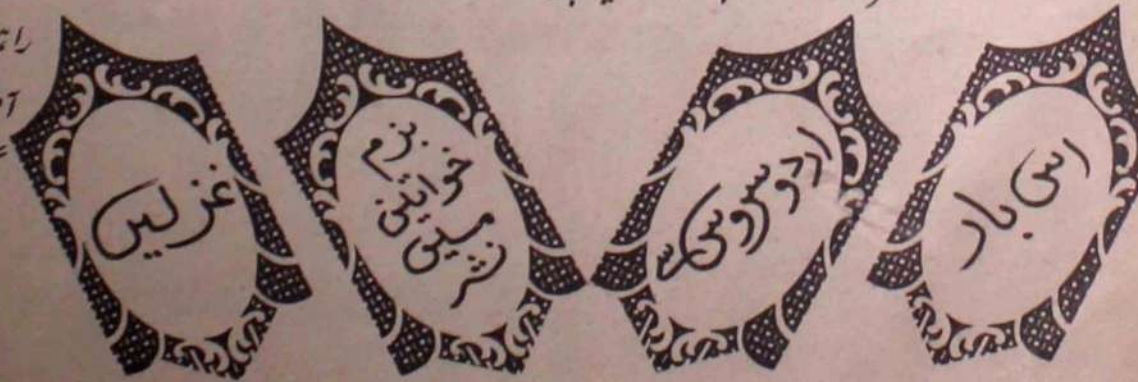 اس بار
اردو سروس سے
بزم
خواتین
میں
نشر
غزلیں